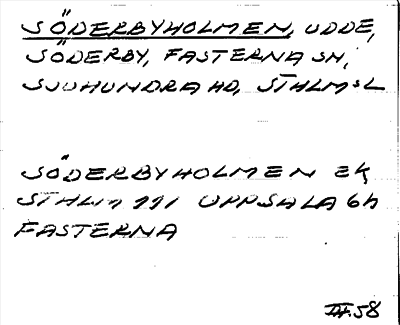 SÖDERBYHOLMEN, UDDE,
SÖDERBY, FASTERNA SN,
SJUHUNDRA HD, STHLMSL
SÖDERBYHOLMEN EK
STHLM 111 UPPSALA 6h
FASTERNA
III.58